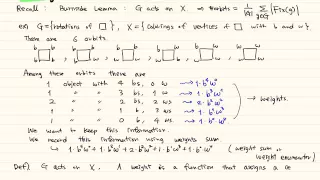 Recall : Burnside Lemma : G acts on X ⇒ #orbits = 1/|G| Σ_{g∈G} |Fix(g)|
ex) G = {rotations of □}, X = {colorings of vertices of □ with b and w}
There are 6 orbits.
b b b b b b b w b w w w
b b , b w , w w , w b , w w , w w
Among these orbits there are
1 object with 4 bs, 0 w → 1·b⁴w⁰
1 " 3 bs, 1 w → 1·b³w¹
2 " 2 bs, 2 ws → 2·b²w² → weights.
1 " 1 b, 3 ws → 1·b¹w³
1 " 0 b, 4 ws → 1·b⁰w⁴
We want to keep this information.
We record this information using weights sum
↳ 1·b⁴w⁰ + 1·b³w¹ + 2·b²w² + 1·b¹w³ + 1·b⁰w⁴ (weight sum or weight enumerator)
Def) G acts on X. A weight is a function that assigns a